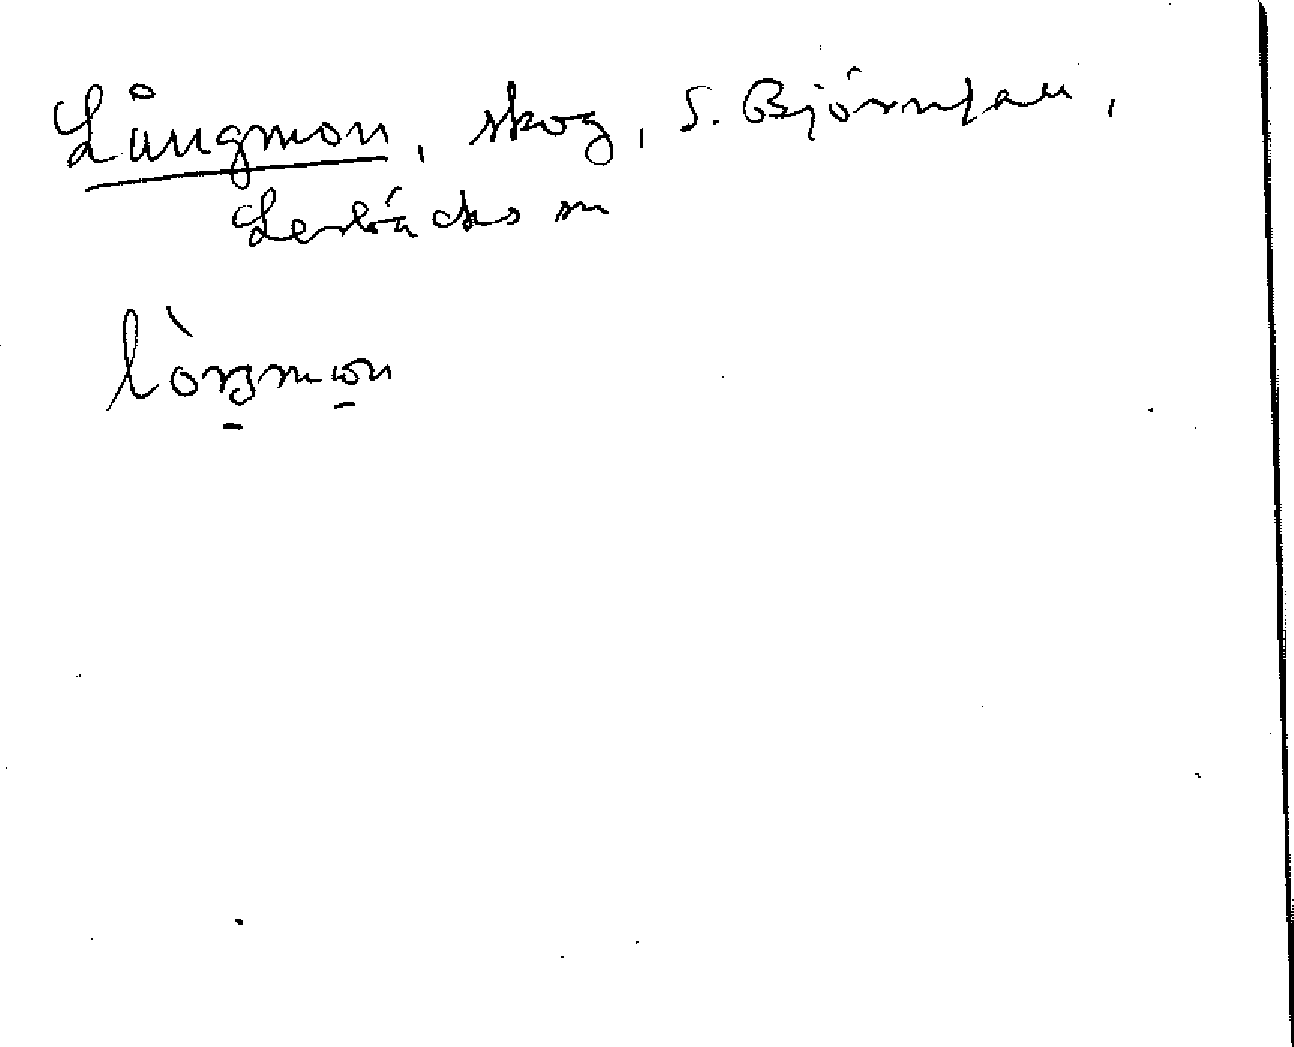 Långmon, skog, S. Björnfall,
Lerbäcks sn
lòŋmon